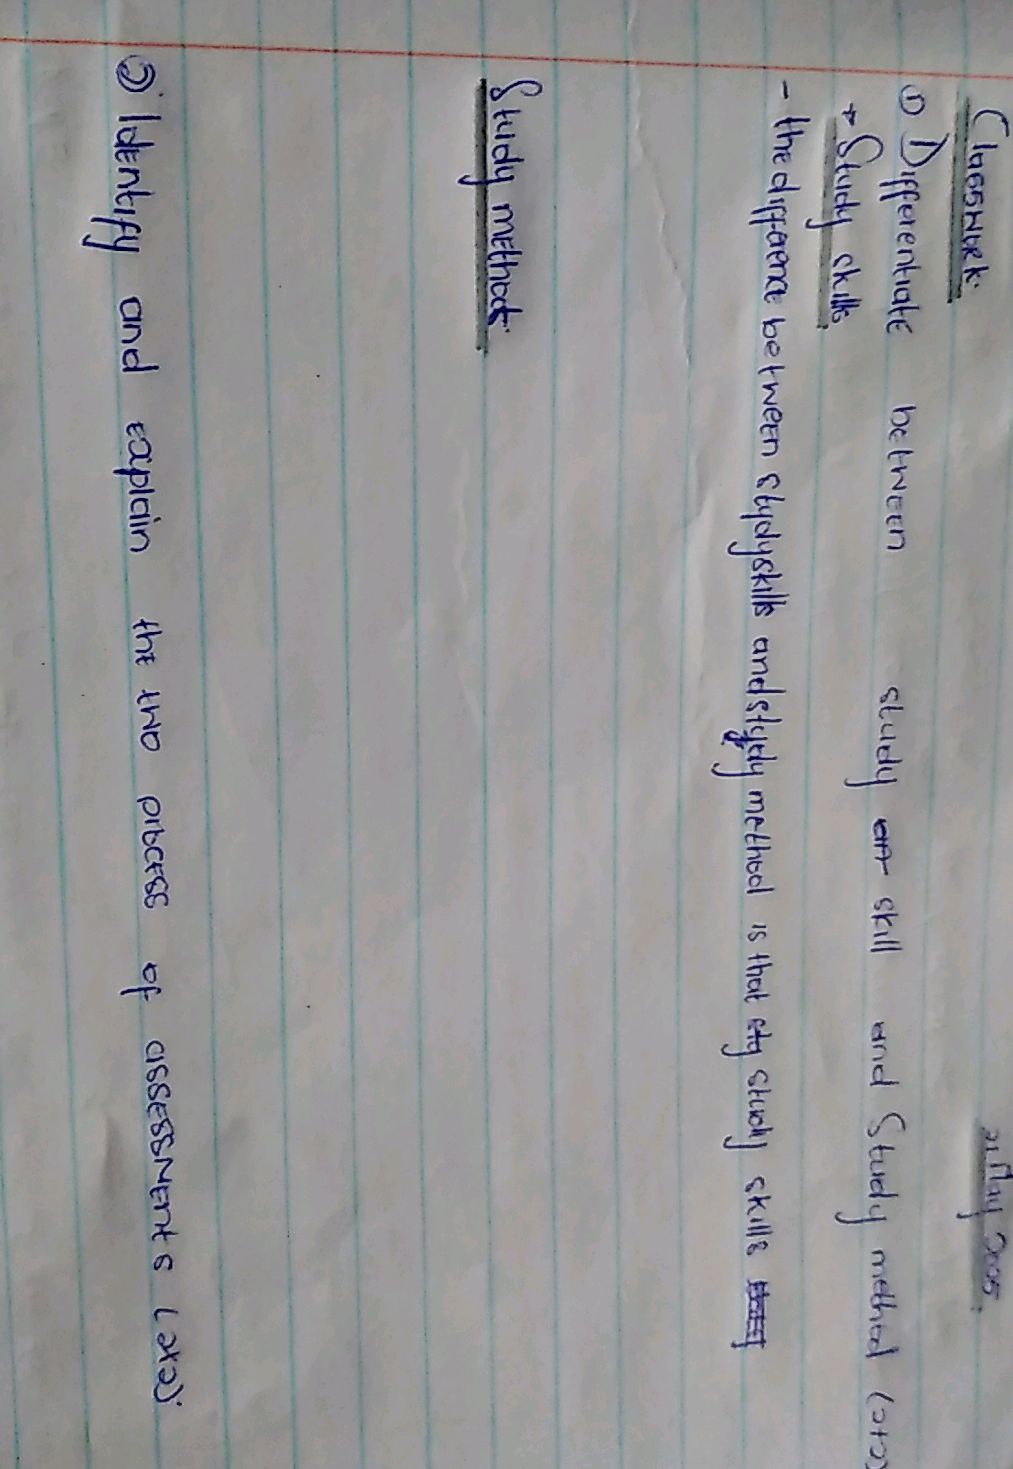 21 May 2025
Classwork.
① Differentiate between study skill and Study method (2x2)
+ Study skills
- the difference between stydyskills and stydy method is that study skills
Study methods
② Identify and explain the two process of assessments (2x2)